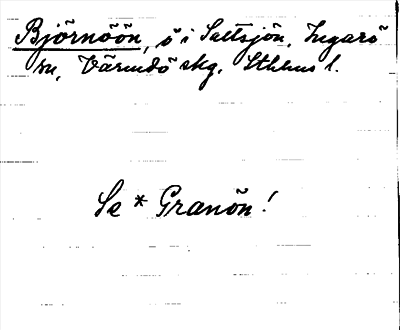 Björnöön, ö i Saltsjön, Ingarö
sn, Värmdö skg, Sthlms l.
Se * Granön!